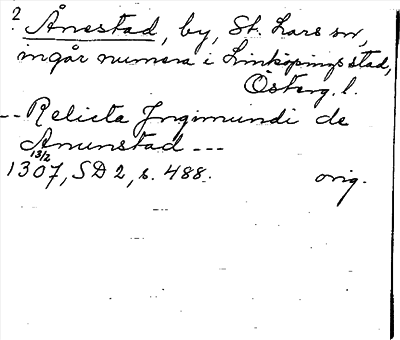 ? Ånestad, by, St. Lars sn,
ingår numera i Linköpings stad,
Österg. l.
-- Relicta Jngimundi de
Amunstad ---
13/2
1307, SD 2, s. 488. orig.